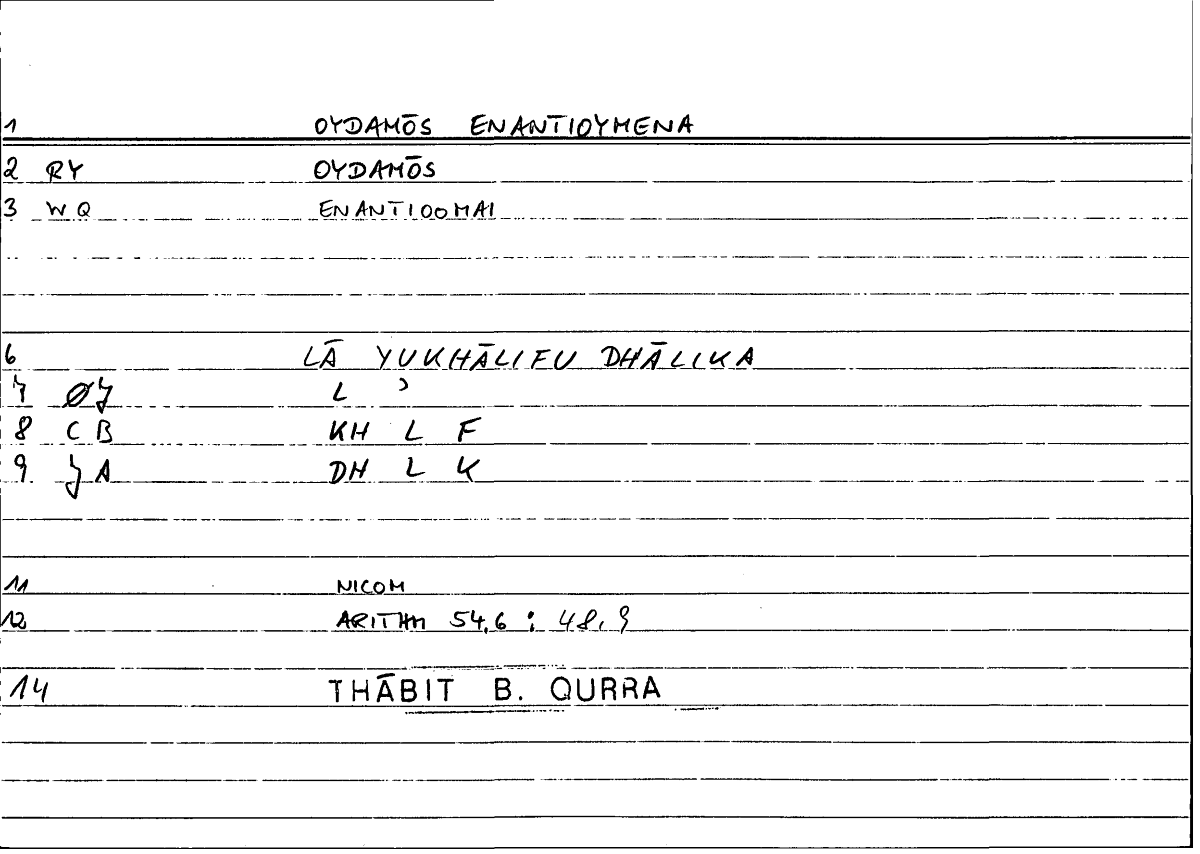 1 OYDAMŌS ENANTIOYMENA
2 RY OYDAMŌS
3 WQ ENANTIOOMAI
6 LĀ YUKHĀLIFU DHĀLIKA
7 ØJ L ʾ
8 CB KH L F
9 JA DH L K
11 NICOM
12 ARITHM 54,6 : 48,9
14 THĀBIT B. QURRA